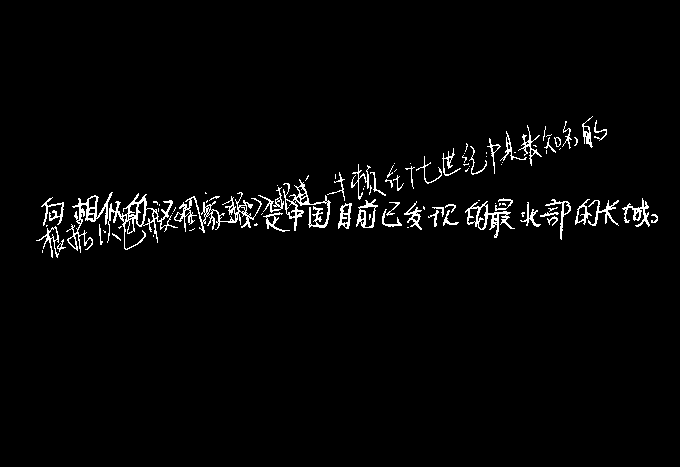 根据以色列《国家报》报道,牛顿在十七世纪中是最知名的
向相似的 是中国目前已发现的最北部的长城。